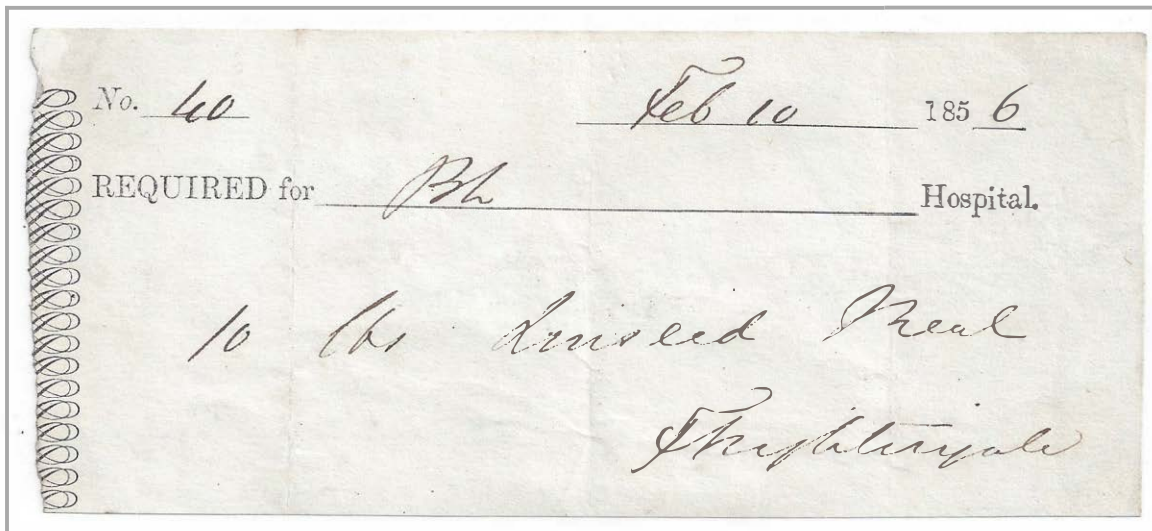 No. 40 Feb 10 1856
REQUIRED for BH Hospital.
10 lbs Linseed Meal
FNightingale